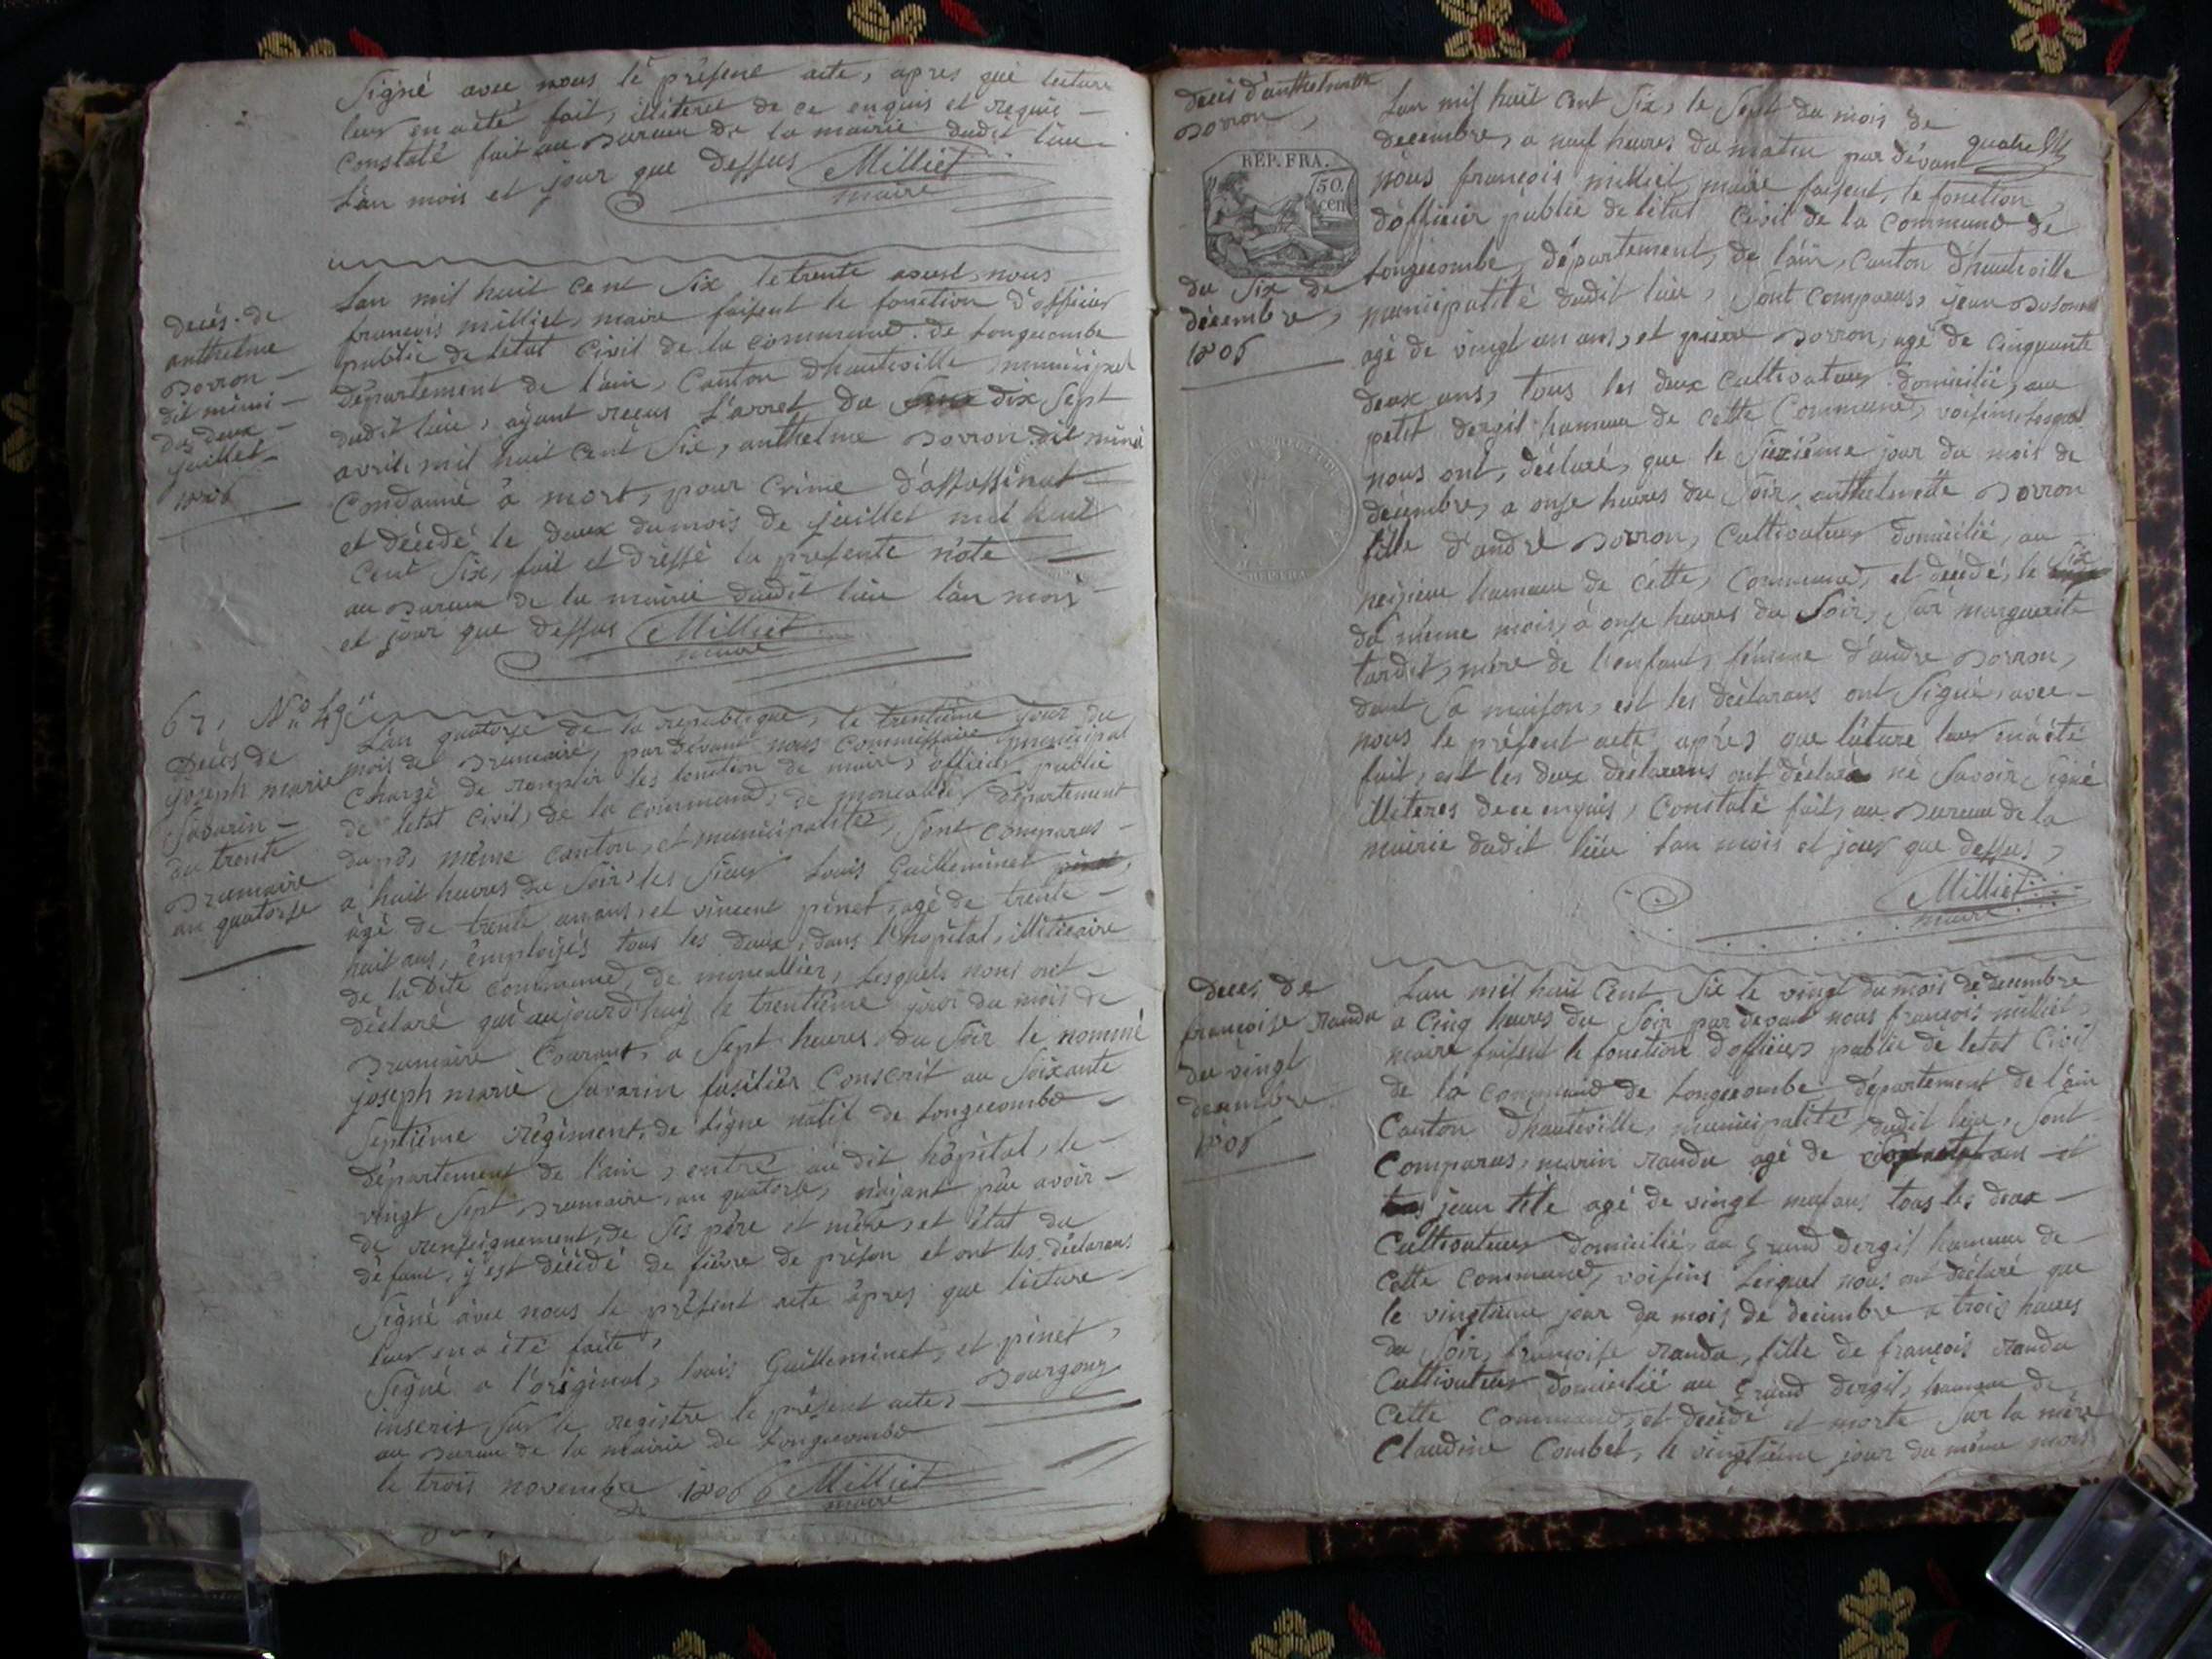 Signé avec nous le présent acte, apres que lecture
leur en a été fait, illiteré de ce enquis et requis
Constaté fait au Bureau de la mairie dudit lieu
L'an mois et jour que dessus Milliet
maire
Decés de
anthelme
Borron
dit mimi
du deux
juillet
1806
Lan mil huit cent Six le trente aoust, nous
francois milliet, maire faisent le fonction d'officier
public de letat Civil de la commune de Longecombe
Département de l'ain, Canton dhauteville municipal
dudit lieu, ayant recus L'arret du dix Sept
avril mil huit Cent Six, anthelme Borron dit mimi
Condamné à mort, pour Crime d'assassinat
et décédé le deux du mois de juillet mil huit
Cent Six, fait et dressé la presente note
au Bureau de la mairie dudit lieu lan mois
et jour que dessus Milliet
maire
67, N.o 49
Décés de
joseph marie
Savarin
du trente
Brumaire
an quatorse
L'an quatorse de la republique, le trentième jour du
mois de Brumaire, pardevant nous Commissaire municipal
Chargé de remplir les fonction de maire, officier public
de letat Civil, de la commune, de moncallier, département
dupô, même canton, et municipalité, Sont comparus
a huit heures du Soir, les Sieur Louis Guilleminet
âgé de trente un ans, et vincent pinet, agé de trente
huit ans, employés tous les deux, dans l'hopital, militaire
de la Dite commune, de moncallier, Lesquels nous ont
déclaré qu'aujourdhuy le trentième jour du mois de
Brumaire Courant, a Sept heures du Soir le nommé
joseph marie Savarin fusilier Conscrit au Soixante
Septième régiment, de ligne natif de Longecombe
département de l'ain, entré au dit hôpital, le
vingt Sept Brumaire, an quatorse, n'ayant pûe avoir
de renseignement, de Ses père et mère, et état du
défunt, y est décédé de fièvre de prison et ont les déclarans
Signé avec nous le présent acte âpres que lecture
leur en a été faite,
Signé a l'original, louis Guilleminet, et pinet,
inscris Sur le registre le présent acte, Bourgouz
au Bureau de la mairie de Longecombe
le trois novembre 1806 Milliet
maire
Decés d'anthelmette
Borron,
REP. FRA.
50.
cen
du Six de
décembre,
1806
Lan mil huit Cent Six, le Sept du mois de
decembre, a neuf heures du matin par dévant
nous françois milliet, maire faisent, le fonction
dofficier public de létat Civil de la Commune de
Longecombe, département, de l'ain, Canton d'hauteville
municipalité dudit lieu, Sont Comparus, jean
agé de vingt un ans, et pierre Borron, agé de Cinquante
deux ans, tous les deux Cultivateur domicilié, au
petit dergil hameau de cette Commune, voisins lesquel
nous ont, déclaré, que le Sixième jour du mois de
décembre, a onse heures du Soir, anthelmette Borron
fille d'andré Borron, Cultivateur domicilié, au
hameau de cette, Commune, et decedé, le Six
du même mois, à onse heures du Soir, Sur marguerite
tardit, mère de l'enfant, fémme d'andre Borron,
dant Sa maison, est les déclarans ont Signé, avec
nous le présent acte, après que lecture leur en a été
fait, est les deux déclarans ont déclaré né Savoir Signé
illiteres de ce enquis, Constaté fait, au Bureau de la
mairie dudit lieu lan mois et jour que dessus,
Milliet
maire
Deces de
françoise randu
du vingt
decembre
1806
Lan mil huit Cent Six le vingt du mois de decembre
a Cinq heures du Soir par devant nous francois milliet,
maire faisent le fonction dofficier public de letat Civil
de la commune de Longecombe département de l'ain
Canton d'hauteville, municipalité, dudit lieu, Sont
Comparus, marin randu agé de
jean tile agé de vingt neuf ans tous les deux
Cultivateur domicilié, au Grand dergil hameau de
cette Commune, voisins Lesquel nous ont déclaré que
le vingtième jour du mois de decembre a trois heures
du Soir, françoise randu, fille de françois randu
Cultivateur domicilié au Grand dergil, hameau de
Cette Commune, et decédé et morte Sur la mère
Claudine Combet, le vingtième jour du même mois